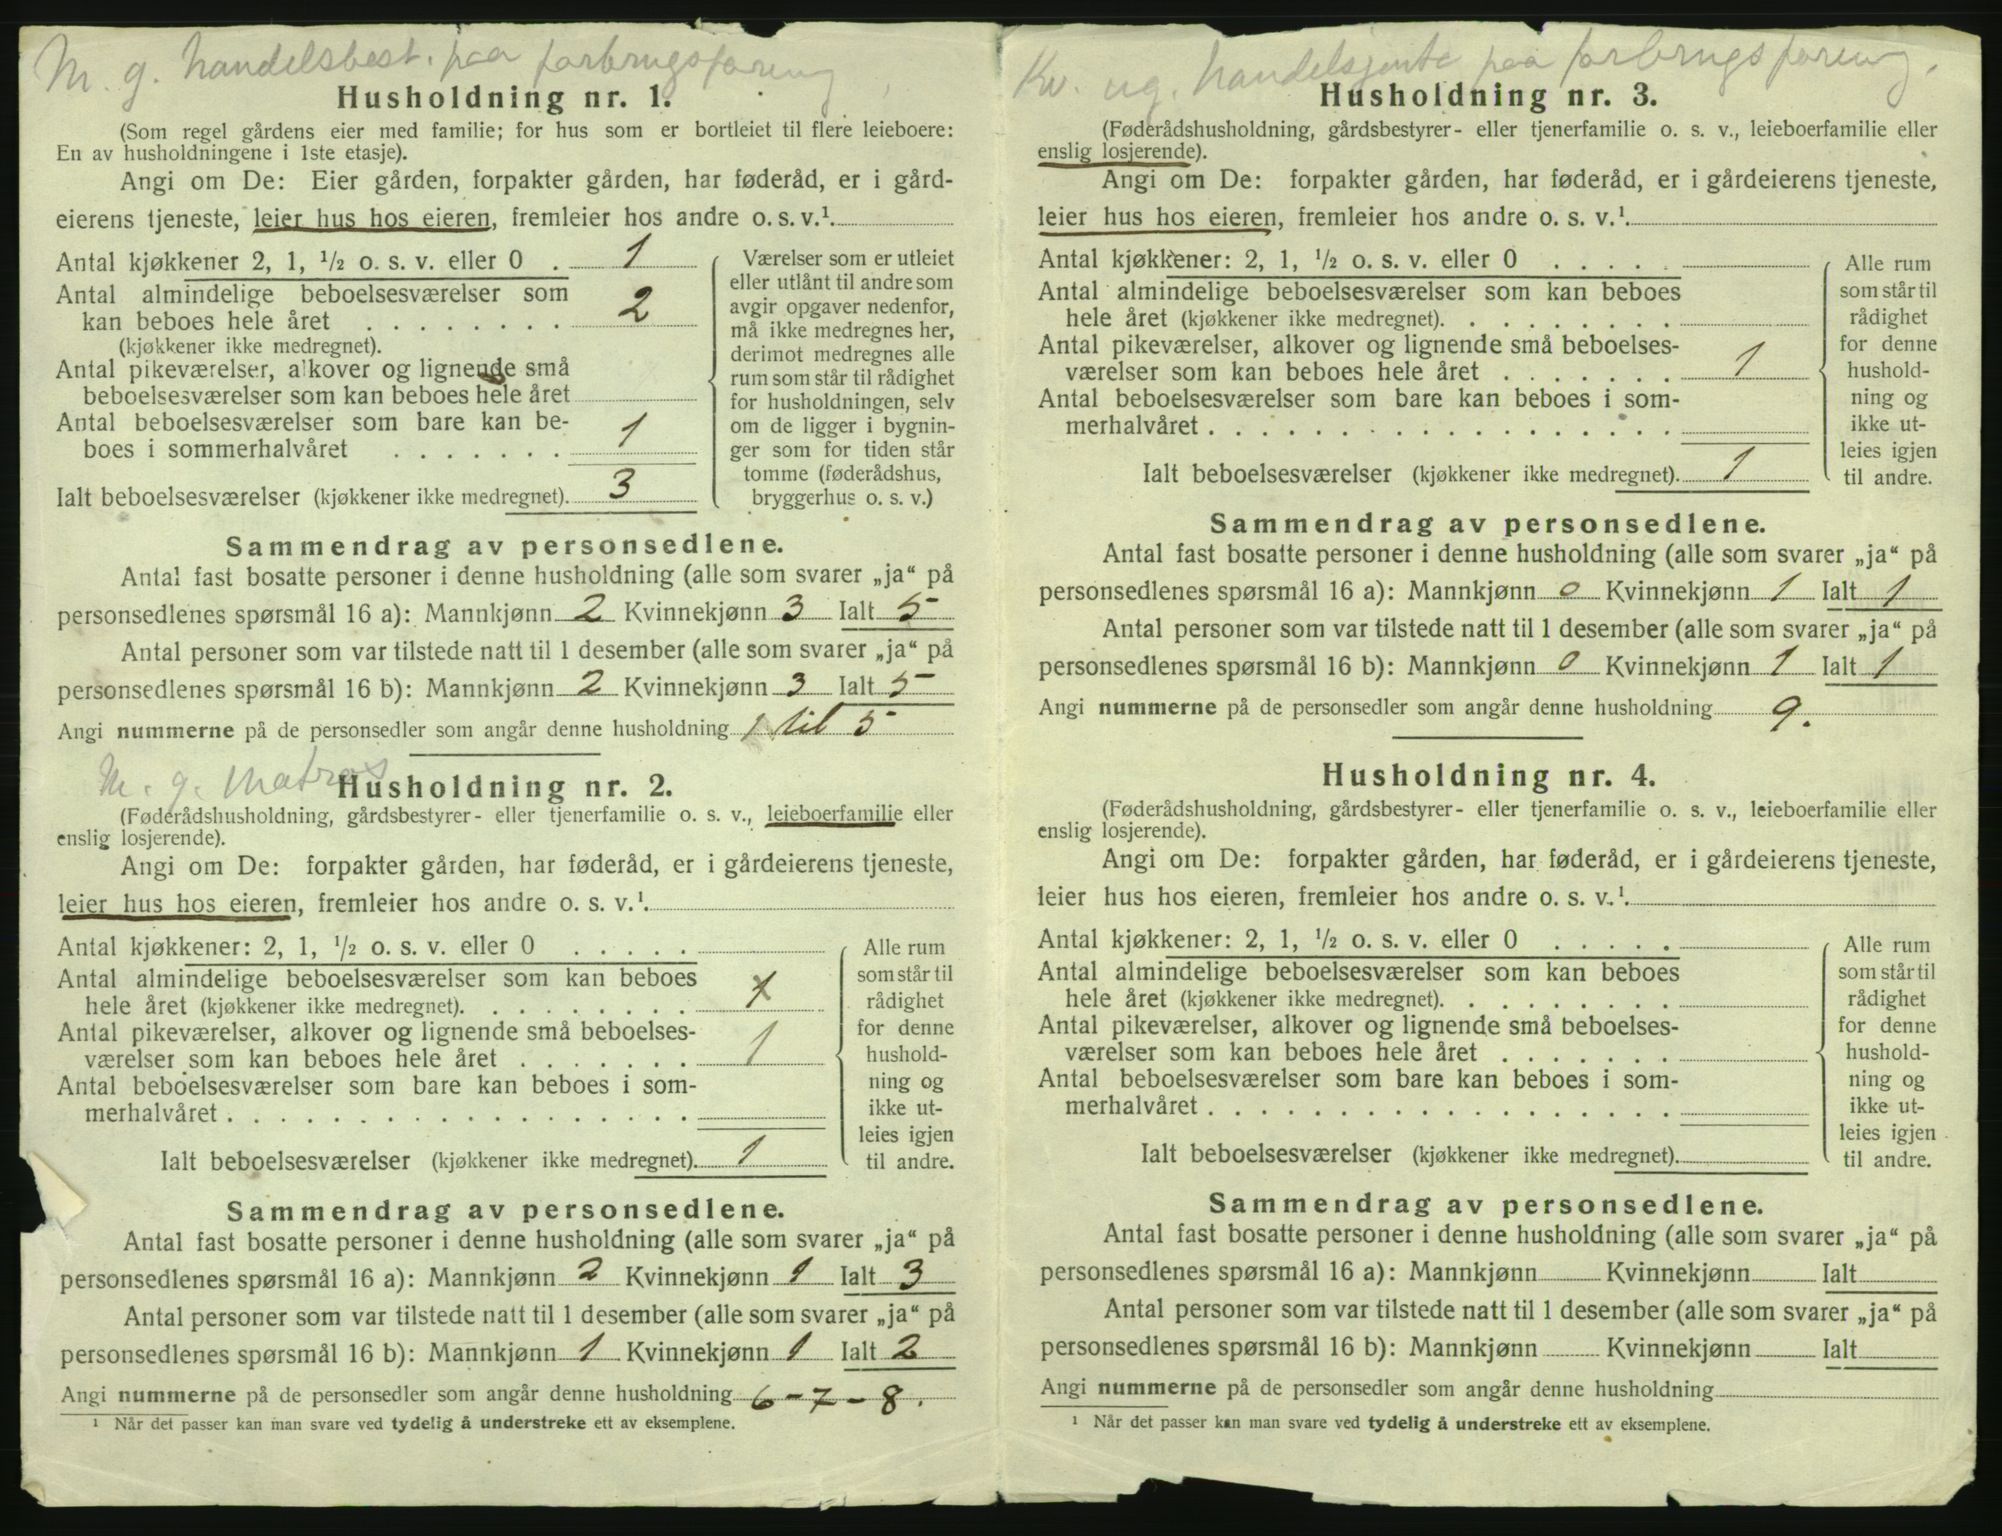 M. g. handelsbest. paa forbrugsforening
Husholdning nr. 1.
(Som regel gårdens eier med familie; for hus som er bortleiet til flere leieboere:
En av husholdningene i 1ste etasje).
Angi om De: Eier gården, forpakter gården, har føderåd, er i gård-
eierens tjeneste, leier hus hos eieren, fremleier hos andre o. s. v.¹
Antal kjøkkener 2, 1, ½ o. s. v. eller 0 . 1
Antal almindelige beboelsesværelser som
kan beboes hele året . . . . . . . . 2
(kjøkkener ikke medregnet).
Antal pikeværelser, alkover og lignende små
beboelsesværelser som kan beboes hele året
Antal beboelsesværelser som bare kan be-
boes i sommerhalvåret . . . . . . . 1
Ialt beboelsesværelser (kjøkkener ikke medregnet). 3
Værelser som er utleiet
eller utlånt til andre som
avgir opgaver nedenfor,
må ikke medregnes her,
derimot medregnes alle
rum som står til rådighet
for husholdningen, selv
om de ligger i bygnin-
ger som for tiden står
tomme (føderådshus,
bryggerhus o. s. v.)
Sammendrag av personsedlene.
Antal fast bosatte personer i denne husholdning (alle som svarer „ja“ på
personsedlenes spørsmål 16 a): Mannkjønn 2 Kvinnekjønn 3 Ialt 5
Antal personer som var tilstede natt til 1 desember (alle som svarer „ja“ på
personsedlenes spørsmål 16 b): Mannkjønn 2 Kvinnekjønn 3 Ialt 5
Angi nummerne på de personsedler som angår denne husholdning 1 til 5
M. g. Matros
Husholdning nr. 2.
(Føderådshusholdning, gårdsbestyrer- eller tjenerfamilie o. s. v., leieboerfamilie eller
enslig losjerende).
Angi om De: forpakter gården, har føderåd, er i gårdeierens tjeneste,
leier hus hos eieren, fremleier hos andre o. s. v.¹.
Antal kjøkkener: 2, 1, ½ o. s. v. eller 0 . . . . .
Antal almindelige beboelsesværelser som kan beboes
hele året (kjøkkener ikke medregnet). . . . . . . . . 1
Antal pikeværelser, alkover og lignende små beboelses-
værelser som kan beboes hele året . . . . . . . 1
Antal beboelsesværelser som bare kan beboes i som-
merhalvåret . . . . . . . . . . . . . . . . . .
Ialt beboelsesværelser (kjøkkener ikke medregnet). 1
Alle rum
som står til
rådighet
for denne
hushold-
ning og
ikke ut-
leies igjen
til andre.
Sammendrag av personsedlene.
Antal fast bosatte personer i denne husholdning (alle som svarer „ja“ på
personsedlenes spørsmål 16 a): Mannkjønn 2 Kvinnekjønn 1 Ialt 3
Antal personer som var tilstede natt til 1 desember (alle som svarer „ja“ på
personsedlenes spørsmål 16 b): Mannkjønn 1 Kvinnekjønn 1 Ialt 2
Angi nummerne på de personsedler som angår denne husholdning 6 - 7 - 8.
¹ Når det passer kan man svare ved tydelig å understreke ett av eksemplene.
Kv. ug. handelsjente paa forbrugsforening.
Husholdning nr. 3.
(Føderådshusholdning, gårdsbestyrer- eller tjenerfamilie o. s. v., leieboerfamilie eller
enslig losjerende).
Angi om De: forpakter gården, har føderåd, er i gårdeierens tjeneste,
leier hus hos eieren, fremleier hos andre o. s. v.¹.
Antal kjøkkener: 2, 1, ½ o. s. v. eller 0 . . . . .
Antal almindelige beboelsesværelser som kan beboes
hele året (kjøkkener ikke medregnet). . . . . . . . .
Antal pikeværelser, alkover og lignende små beboelses-
værelser som kan beboes hele året . . . . . . . 1
Antal beboelsesværelser som bare kan beboes i som-
merhalvåret . . . . . . . . . . . . . . . . . .
Ialt beboelsesværelser (kjøkkener ikke medregnet). 1
Alle rum
som står til
rådighet
for denne
hushold-
ning og
ikke ut-
leies igjen
til andre.
Sammendrag av personsedlene.
Antal fast bosatte personer i denne husholdning (alle som svarer „ja“ på
personsedlenes spørsmål 16 a): Mannkjønn 0 Kvinnekjønn 1 Ialt 1
Antal personer som var tilstede natt til 1 desember (alle som svarer „ja“ på
personsedlenes spørsmål 16 b): Mannkjønn 0 Kvinnekjønn 1 Ialt 1
Angi nummerne på de personsedler som angår denne husholdning 9.
Husholdning nr. 4.
(Føderådshusholdning, gårdsbestyrer- eller tjenerfamilie o. s. v., leieboerfamilie eller
enslig losjerende).
Angi om De: forpakter gården, har føderåd, er i gårdeierens tjeneste,
leier hus hos eieren, fremleier hos andre o. s. v.¹.
Antal kjøkkener: 2, 1, ½ o. s. v. eller 0 . . . . .
Antal almindelige beboelsesværelser som kan beboes
hele året (kjøkkener ikke medregnet). . . . . . . . .
Antal pikeværelser, alkover og lignende små beboelses-
værelser som kan beboes hele året . . . . . . .
Antal beboelsesværelser som bare kan beboes i som-
merhalvåret . . . . . . . . . . . . . . . . . .
Ialt beboelsesværelser (kjøkkener ikke medregnet).
Alle rum
som står til
rådighet
for denne
hushold-
ning og
ikke ut-
leies igjen
til andre.
Sammendrag av personsedlene.
Antal fast bosatte personer i denne husholdning (alle som svarer „ja“ på
personsedlenes spørsmål 16 a): Mannkjønn Kvinnekjønn Ialt
Antal personer som var tilstede natt til 1 desember (alle som svarer „ja“ på
personsedlenes spørsmål 16 b): Mannkjønn Kvinnekjønn Ialt
Angi nummerne på de personsedler som angår denne husholdning
¹ Når det passer kan man svare ved tydelig å understreke ett av eksemplene.